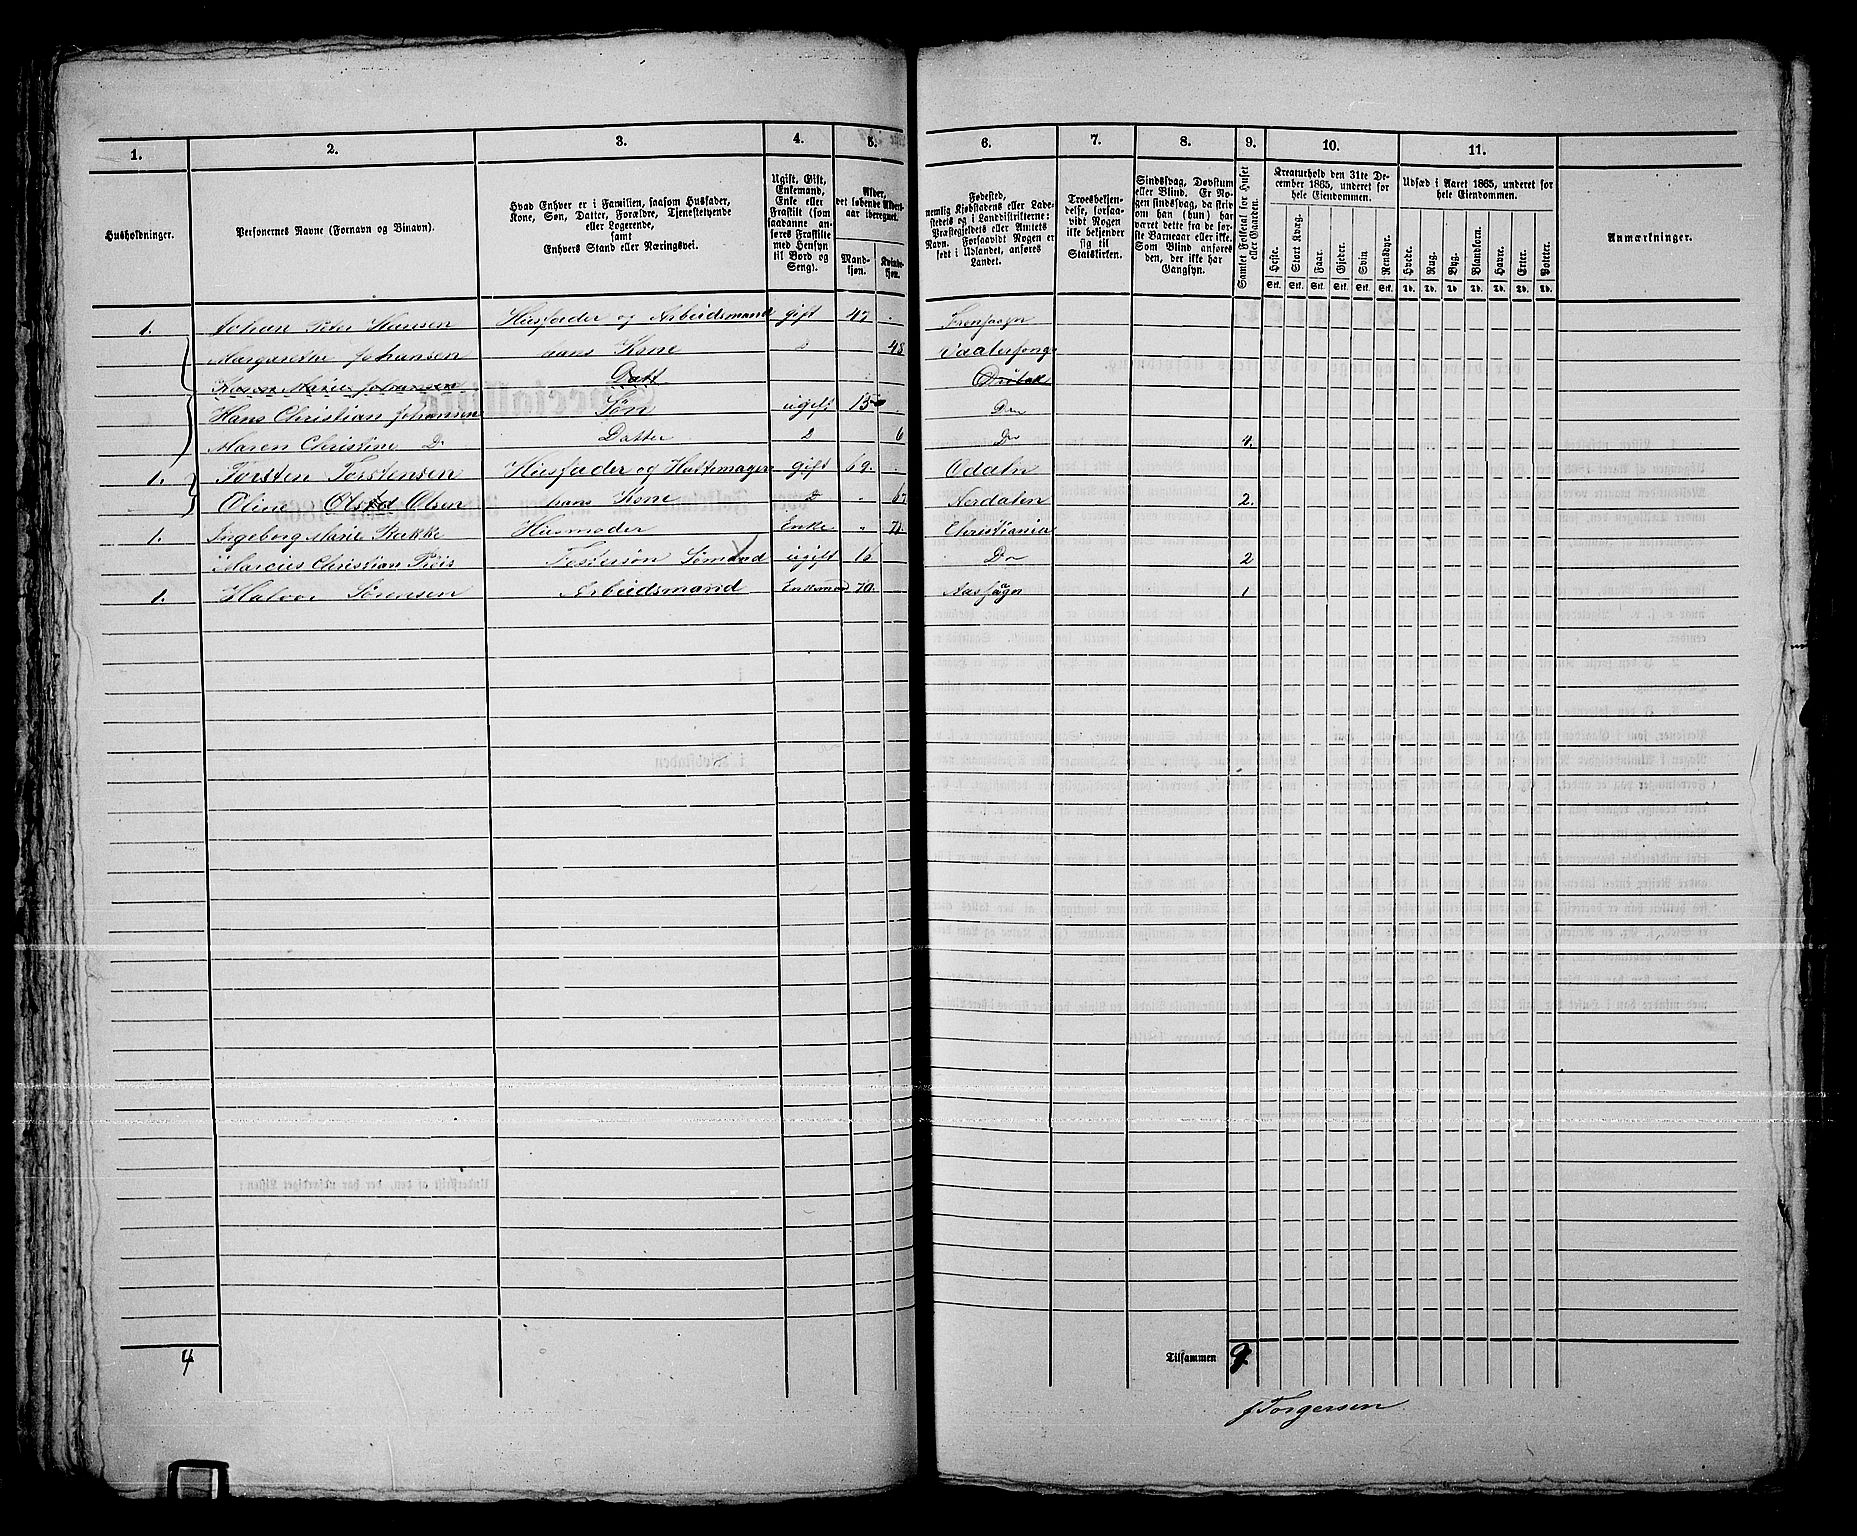 1. 2. 3. 4. 5. 6. 7. 8. 9. 10. 11.
Husholdninger.
Personernes Navne (Fornavn og Binavn).
Hvad Enhver er i Familien, saasom Husfader,
Kone, Søn, Datter, Forældre, Tjenestetyende
eller Logerende,
samt
Enhvers Stand eller Næringsvei.
Ugift, Gift,
Enkemand,
Enke eller
Fraskilt (som
saadanne an-
føres Fraskilte
med Hensyn
til Bord og
Seng).
Alder,
det løbende Alders-
aar iberegnet.
Mand-
kjøn.
Kvinde-
kjøn.
Fødested,
nemlig Kjøbstadens eller Lade-
stedets og i Landdistrikterne:
Præstegjeldets eller Amtets
Navn. Forsaavidt Nogen er
født i Udlandet, anføres
Landet.
Troesbekjen-
delse, forsaa-
vidt Nogen
ikke bekjender
sig til
Statskirken.
Sindssvag, Døvstum
eller Blind. Er No-
gen sindssvag, da skriv
om han (hun) har
været dette fra de før-
ste Barneaar eller ikke.
Som Blind anføres
den, der ikke har
Gangsyn.
Samlet Folketal for Huset
eller Gaarden.
Kreaturhold den 31te De-
cember 1865, underet for
hele Eiendommen.
Heste. Stort Kvæg. Faar. Gjeder. Svin Rensdyr.
Stk. Stk. Stk. Stk. Stk. Stk.
Udsæd i Aaret 1865, underet for
hele Eiendommen.
Hvede. Rug. Byg. Blandkorn. Havre. Erter. Poteter.
Td. Td. Td. Td. Td. Td. Td.
Anmærkninger.
1. Johan Peter Hansen Husfader og Arbeidsmand gift 47 .
Margarethe Johansen hans Kone 48
Karen Marie Johansen Datt Drøbak
Hans Christian Johansen Søn ugift 15 . Do
Maren Christine Do Datter 6 Do 4.
1. Torsten Torstensen Husfader og Hattemager gift 69. . Odaln
Oline Olsen hans Kone " 67 Nordalen 2.
1. Ingeborg Marie Bakke Husmoder Enke " Christiania
Marcus Christian Fostersøn Sømand ugift 16 Do 2
1. Halvor Sørensen Arbeidsmand Enkemand 70. 1
4
Tilsammen 9.
J Torgersen